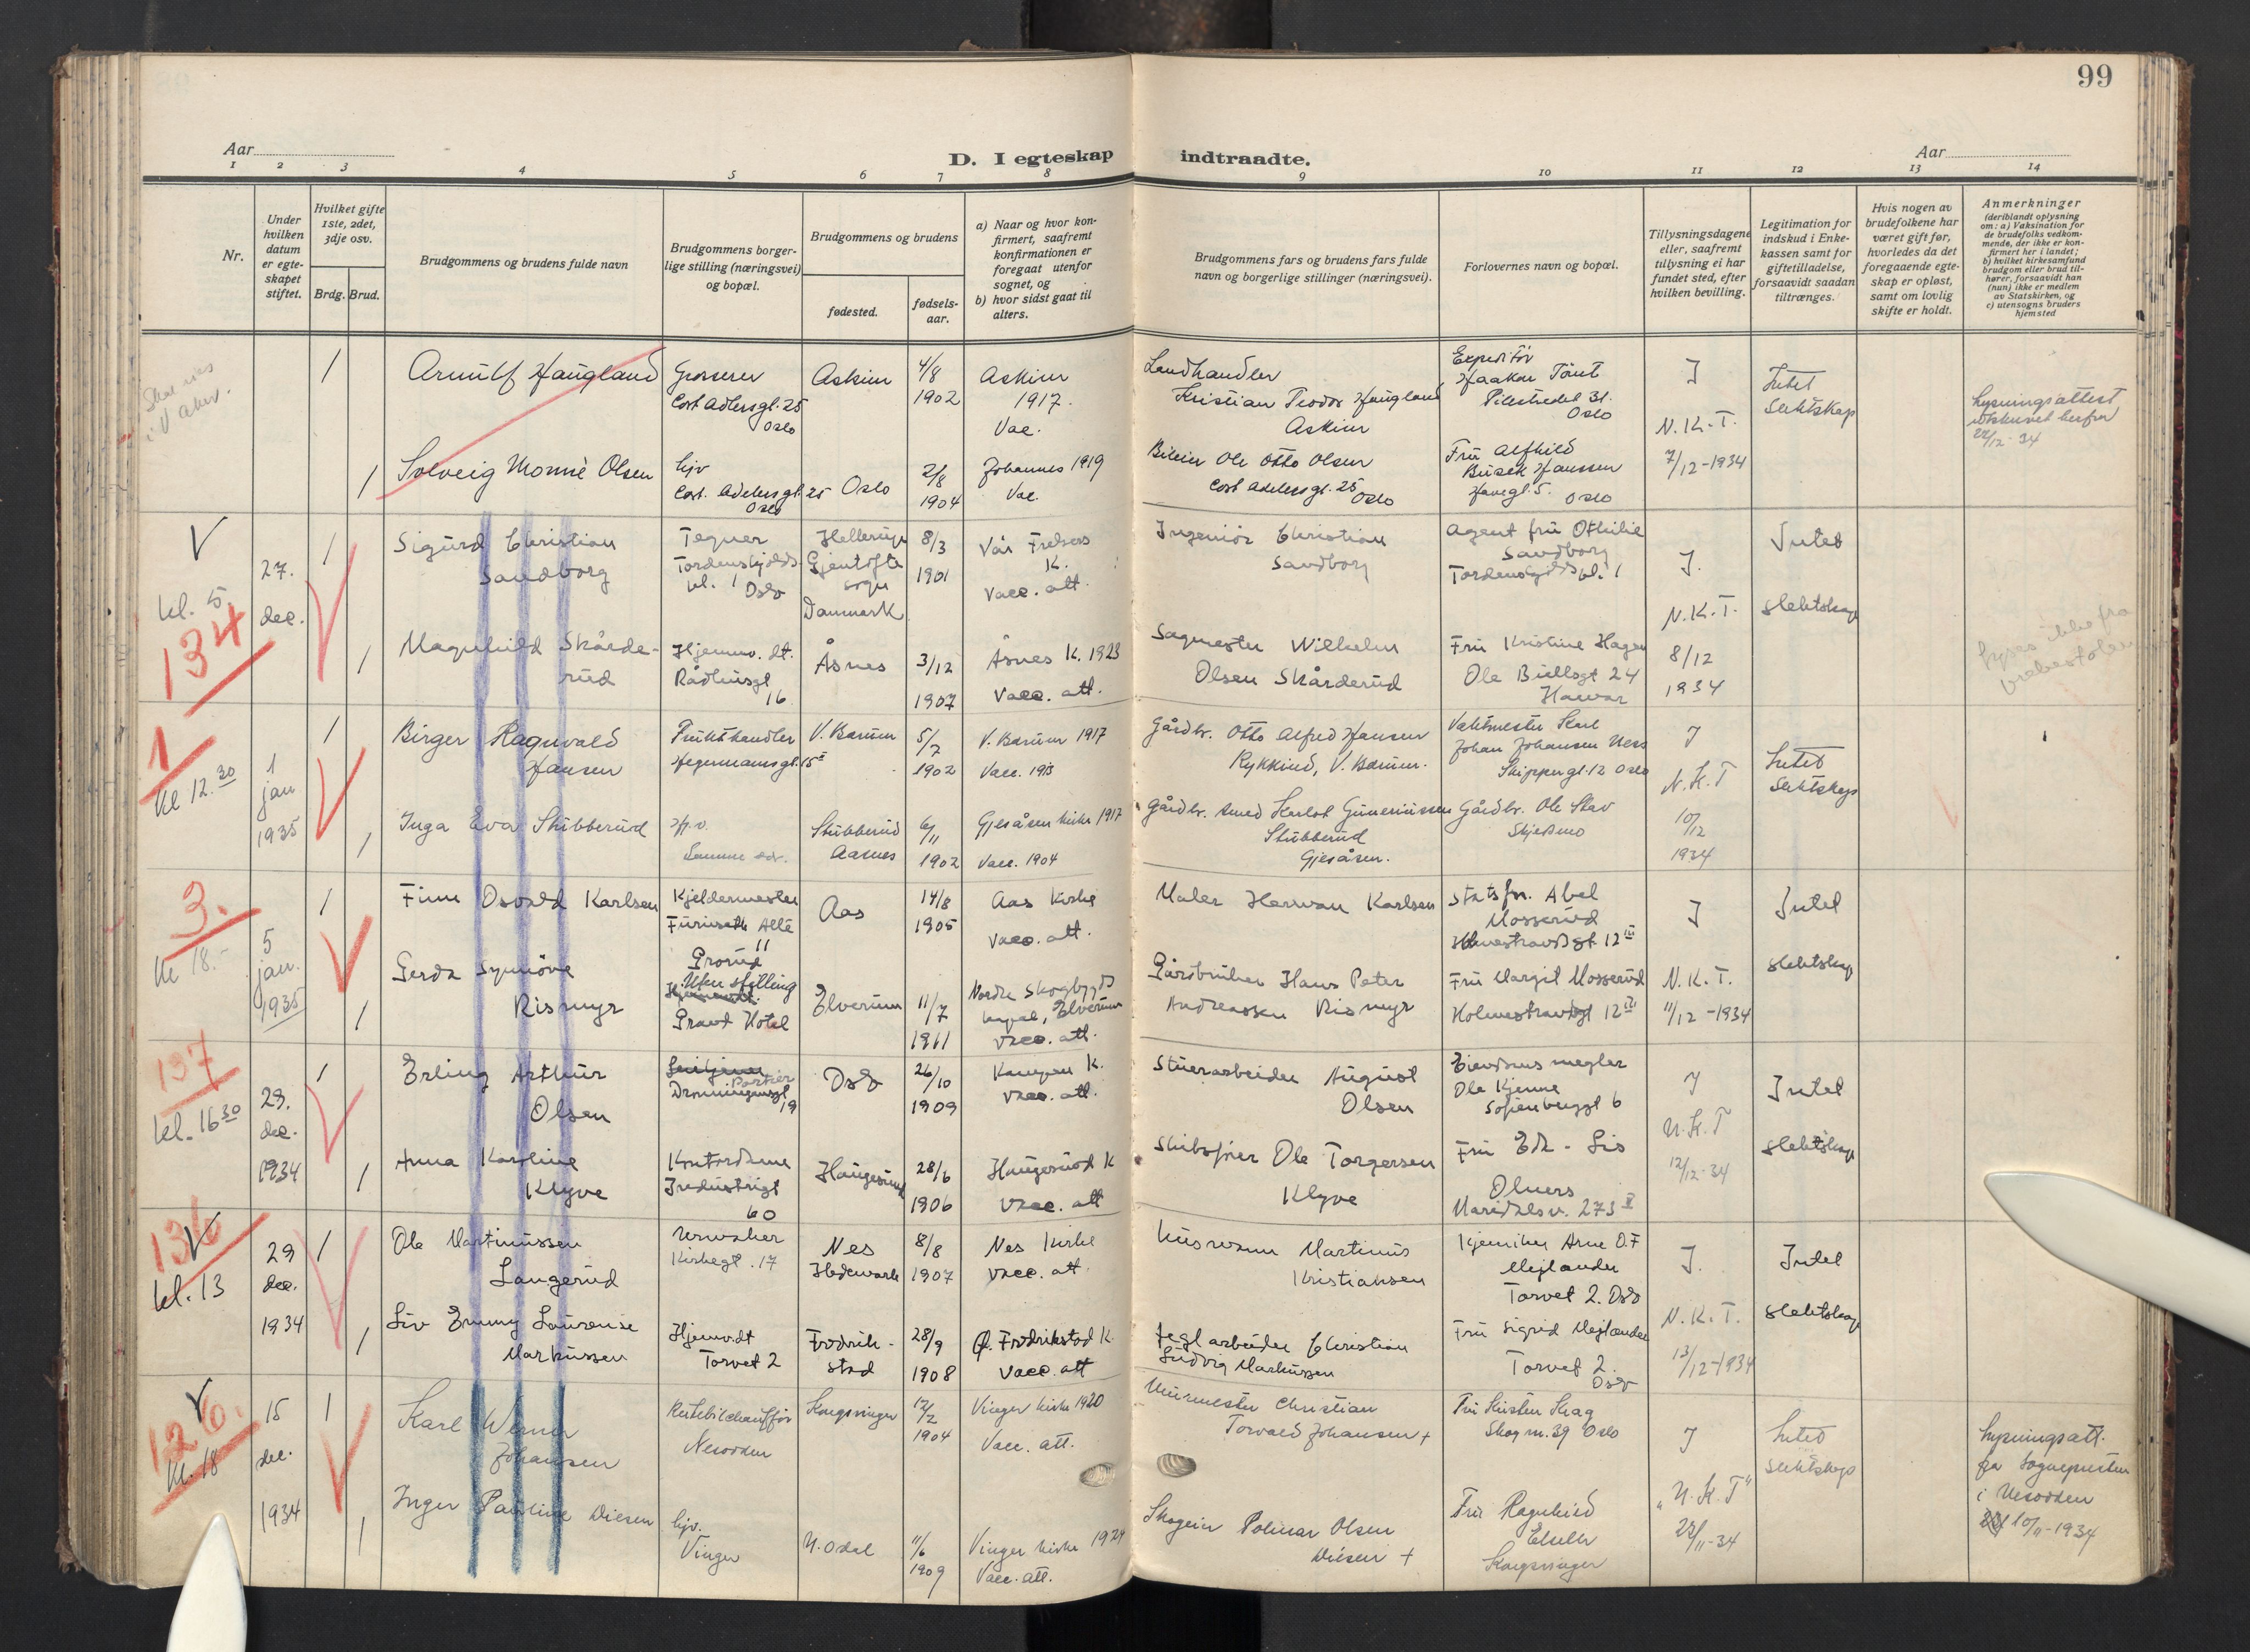 99
Aar
Aar
D. I egteskap indtraadte.
1 2 3 4 5 6 7 8 9 10 11 12 13 14
Nr.
Under hvilken datum er egteskapet stiftet.
Hvilket gifte 1ste, 2det, 3dje osv.
Brdg. Brud.
Brudgommens og brudens fulde navn
Brudgommens borgerlige stilling (næringsvei) og bopæl.
Brudgommens og brudens
fødested.
fødselsaar.
a) Naar og hvor konfirmert, saafremt konfirmationen er foregaat utenfor sognet, og
b) hvor sidst gaat til alters.
Brudgommens fars og brudens fars fulde navn og borgerlige stillinger (næringsvei).
Forlovernes navn og bopæl.
Tillysningsdagene eller, saafremt tillysning ei har fundet sted, efter hvilken bevilling.
Legitimation for indskud i Enkekassen samt for giftetilladelse, forsaavidt saadan tiltrænges.
Hvis nogen av brudefolkene har været gift før, hvorledes da det foregaaende egteskap er opløst, samt om lovlig skifte er holdt.
Anmerkninger
(deriblandt oplysning om: a) Vaksination for de brudefolks vedkommende, der ikke er konfirmert her i landet;
b) hvilket kirkesamfund brudgom eller brud tilhører, forsaavidt han (hun) ikke er medlem av Statskirken, og
c) utensogns bruders hjemsted
1
Arnulf Haugland
Grosserer
Cort Adlersgt. 25
Oslo
Askim
4/8
1902
Askim
1917.
Vac.
Landhandler
Kristian Teodor Haugland
Askim
Expeditør
Haakon Tönt
Pilestredet 31.
Oslo
I
N.K.T.
7/12-1934
Intet
Slektskap
Lysningsattest
utskrevet herfra
22/12-34
1
Solveig Monné Olsen
hjv
Cort. Adelersgt. 25
Oslo
Oslo
2/8
1904
Johannes 1919
Vac.
Ole Otto Olsen
Cort Adelersgt. 25
Oslo
Fru Alfhild
Busch Hanssen
Havegt. 5. Oslo
V
kl. 5
134
27.
dec.
1
Sigurd Christian
Sandborg
Tegner
Tordenskjolds
pl. 1 Oslo
Hellerup
Gjentofte
sogn
Danmark
8/3
1901
Vår Frelsers
K.
Vacc. att.
Ingeniör Christian
Sandborg
Agent fru Othilie
Sandborg
Tordenskjolds pl. 1
J.
N.K.T.
8/12
1934
Intet
slektskap
lyses ikke fra
prekestolen
1
Magnhild Skårderud
Hjemmv. dt.
Rådhusgt
16
Åsnes
3/12
1907
Åsnes K. 1923
Vacc. att.
Sagmester Wilhelm
Olsen Skårderud
Fru Kristine Hagen
Ole Bullsgt 24
Hamar
1
Kl 12.30
1
jan
1935
1
Birger Ragnvald
Hansen
Frukthandler
Hegermannsgt. 15
V. Bærum
5/7
1902
V. Bærum 1917
Vacc. 1913
Gårdbr. Otto Alfred Hansen
Rykkind, V. Bærum.
Vaktmester Karl
Johan Johansen Ness
Skippergt. 12 Oslo
J
N.K.T
10/12
1934
Intet
Slektskap
1
Inga Eva Stubberud
Hj.v.
Samme adr.
Stubberud
Aasnes
6/11
1902
Gjesåsen kirke 1917
Vacc. 1904
Stubberud
Gjesåsen.
Gårdbr. Ole Stav
3.
Kl 18.-
5
jan.
1935
1
Finn Osvald Karlsen
Kjeldermester
Furuseth Allé
11
Grorud
Aas
14/8
1905
Aas Kirke
Vacc. att.
Maler Herman Karlsen
Abel
Mosserud
Holmestrandsgt. 12 III
J
N.K.T.
11/12-1934
Intet
slektskap
1
Gerda Synnöve
Rismyr
Uten stilling
Grand Hotel
Elverum
11/7
1911
Nordre Skogbygds
kapel, Elverum
Vacc. att.
Gårdbruker Hans Peter
Andreassen Rismyr
Fru Margit Mosserud
Holmestrandsgt 12 III
137
kl. 16 30
29.
dec.
1934
1
Erling Arthur
Olsen
Portier
Dronningensgt
19
Oslo
26/10
1909
Kampen K.
Vacc. att.
Stuerarbeider August
Olsen
Eiendomsmegler
Ole Kjenne
Sofienberggt 6
J
N.K.T
12/12-34
Intet
slektskap
1
Anna Karoline
Klyve
Kontordame
Industrigt
60
Haugesund
28/6
1906
Haugesund K
Vacc. att
Ole Torgersen
Klyve
Maridalsv. 273
136
V
kl. 13
29
dec.
1934
1
Ole Martinussen
Langerud
Urmaker
Kirkegt. 17
Nes
Hedemark
8/8
1907
Nes Kirke
Vacc. att
Husmann Martinus
Kristiansen
Kjemiker Arne O.F
Mejlænder
Torvet 2. Oslo
J.
N.K.T.
13/12-1934
Intet
slektskap
1
Liv Emmy Laurense
Markussen
Hjemv.dt
Torvet 2
Fredrikstad
28/9
1908
Ø. Fredrikstad K.
Vacc. att
Teglarbeider Christian
Ludvig Markussen
Fru Sigrid Mejlænder
Torvet 2.
Oslo
V
126.
Kl. 18
15
des.
1934
1
Karl Werner
Johansen
Rutebilchauffør
Nesodden
Kongsvinger
12/2
1904
Vinger kirke 1920
Vacc. att.
Murmester Christian
Torvald Johansen +
Fru Kirsten Skag
39 Oslo
J
"N.K.T"
22/11-34
Intet
Slektskap
Lysningsatt.
fra Sognepresten
i Nesodden
10/11-1934
1
Inger Pauline Diesen
hjv.
Vinger
N. Odal
11/6
1909
Vinger kirke 1924
Vacc. att.
Skogeier Polmar Olsen
Diesen +
Fru Ragnhild
Kongsvinger